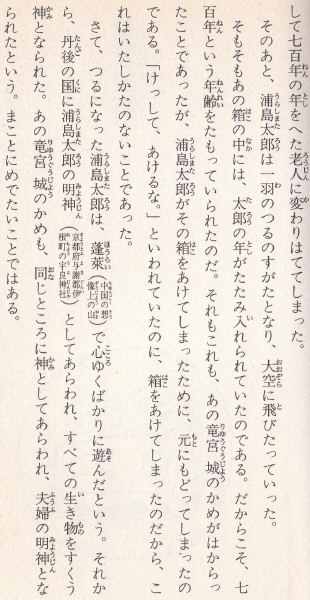 して七百年の年をへた老人に変わりはててしまった。
そのあと、浦島太郎は一羽のつるのすがたとなり、大空に飛びたっていった。
そもそもあの箱の中には、太郎の年がたたみ入れられていたのである。だからこそ、七
百年という年齢をたもっていられたのだ。それもこれも、あの竜宮城のかめがはからっ
たことであったが、浦島太郎がその箱をあけてしまったために、元にもどってしまったの
である。「けっして、あけるな。」といわれていたのに、箱をあけてしまったのだから、こ
れはいたしかたのないことであった。
さて、つるになった浦島太郎は、蓬萊（中国の想像上の山）で心ゆくばかりに遊んだという。それか
ら、丹後の国に浦島太郎の明神（京都府与謝郡伊根町の宇良神社）としてあらわれ、すべての生き物をすくう
神となられた。あの竜宮城のかめも、同じところに神としてあらわれ、夫婦の明神とな
られたという。まことにめでたいことではある。